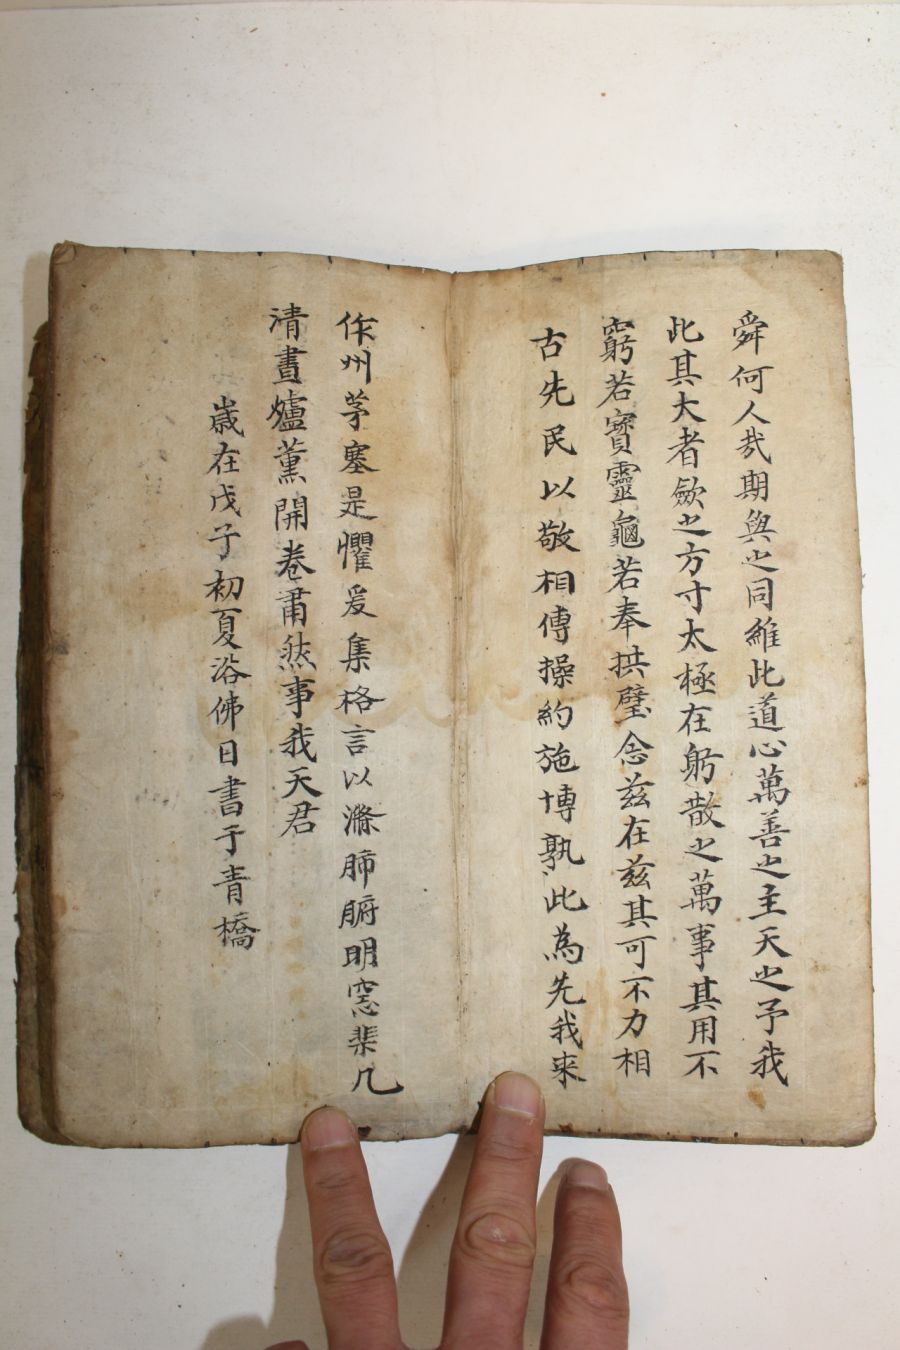 舜何人㢤期與之同維此道心萬善之主天之予我
此其大者斂之方寸太極在躬散之萬事其用不
窮若寶靈龜若奉拱璧念兹在兹其可不力相
古先民以敬相傳操約施博孰此為先我来
作州茅塞是懼爰集格言以滌肺腑明窓棐几
清晝爐薰開卷肅然事我天君
歲在戊子初夏浴佛日書于青橋